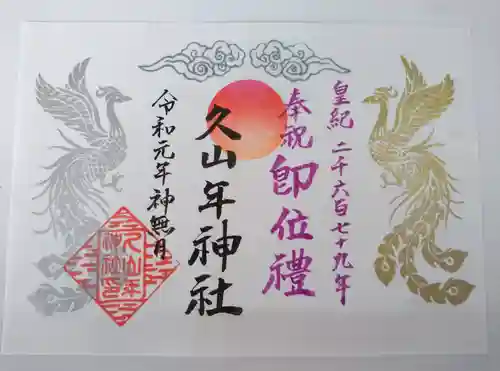 皇紀 二千六百七十九年
奉祝 即位禮
久山年神社
令和元年神無月
久山年神社印